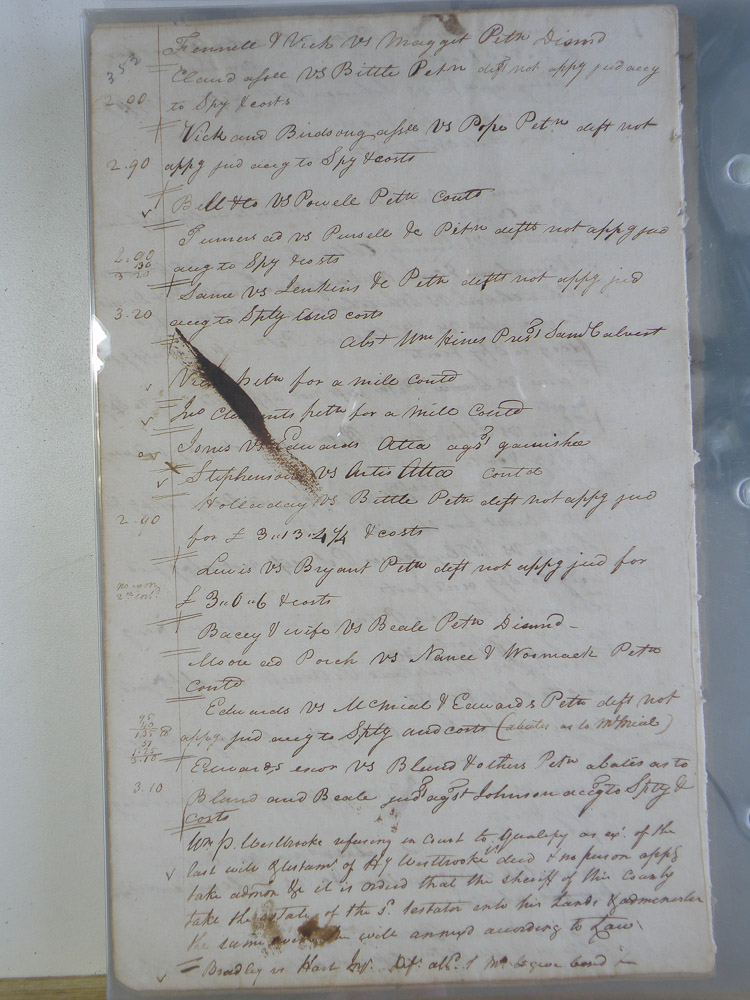 353
Fennell & Vick vs Magget Petn Dismd
Claud assee VS Bittle Petn deft not appg jud accg
2.90 to Spy & costs
Vick and Birdsong assee VS Pope Petn. deft not
2.90 appg jud accg to Spy & costs
Bell & Co VS Powell Petn Contd
Turners ad vs Pursell &c Petn defts not appg jud
2.90 accg to Spy & costs
Same vs Jenkins &c Petn defts not appg jud
3.20 accg to Spty and costs
Abst Wm Hines Prest Saml Calvert
Vick petn for a mill contd
Jno Clements petn for a mill Contd
Jones vs Edwards Atta agst garnishee
Stephenson VS Artis Atta Contd
Holleday VS Bittle Petn deft not appg jud
2.90 for £ 3..13..4 1/4 & costs
Lewis VS Bryant Petn deft not appg jud for
£ 3..0..6 & costs
Bacey & wife VS Beale Petn Dismd
Moore ad Porch vs Nance & Wormack Petn
Contd
Edwards vs McNeial & Edwards Petn deft not
appg jud accg to Spty and costs (abates as to McNeial)
Edwards exor VS Bland & others Petn abates as to
3.10 Bland and Beale judt agst Johnson accg to Spty &
costs
Wm P. Westbrooke refusing in Court to Qualify as exr. of the
last will & testamt. of Hy Westbrooke decd & no person appg
take admon &c it is ordered that the Sheriff of this County
take the estate of the sd. testator into his hands & administer
the same with the will annexed according to Law.
Bradley vs Hart